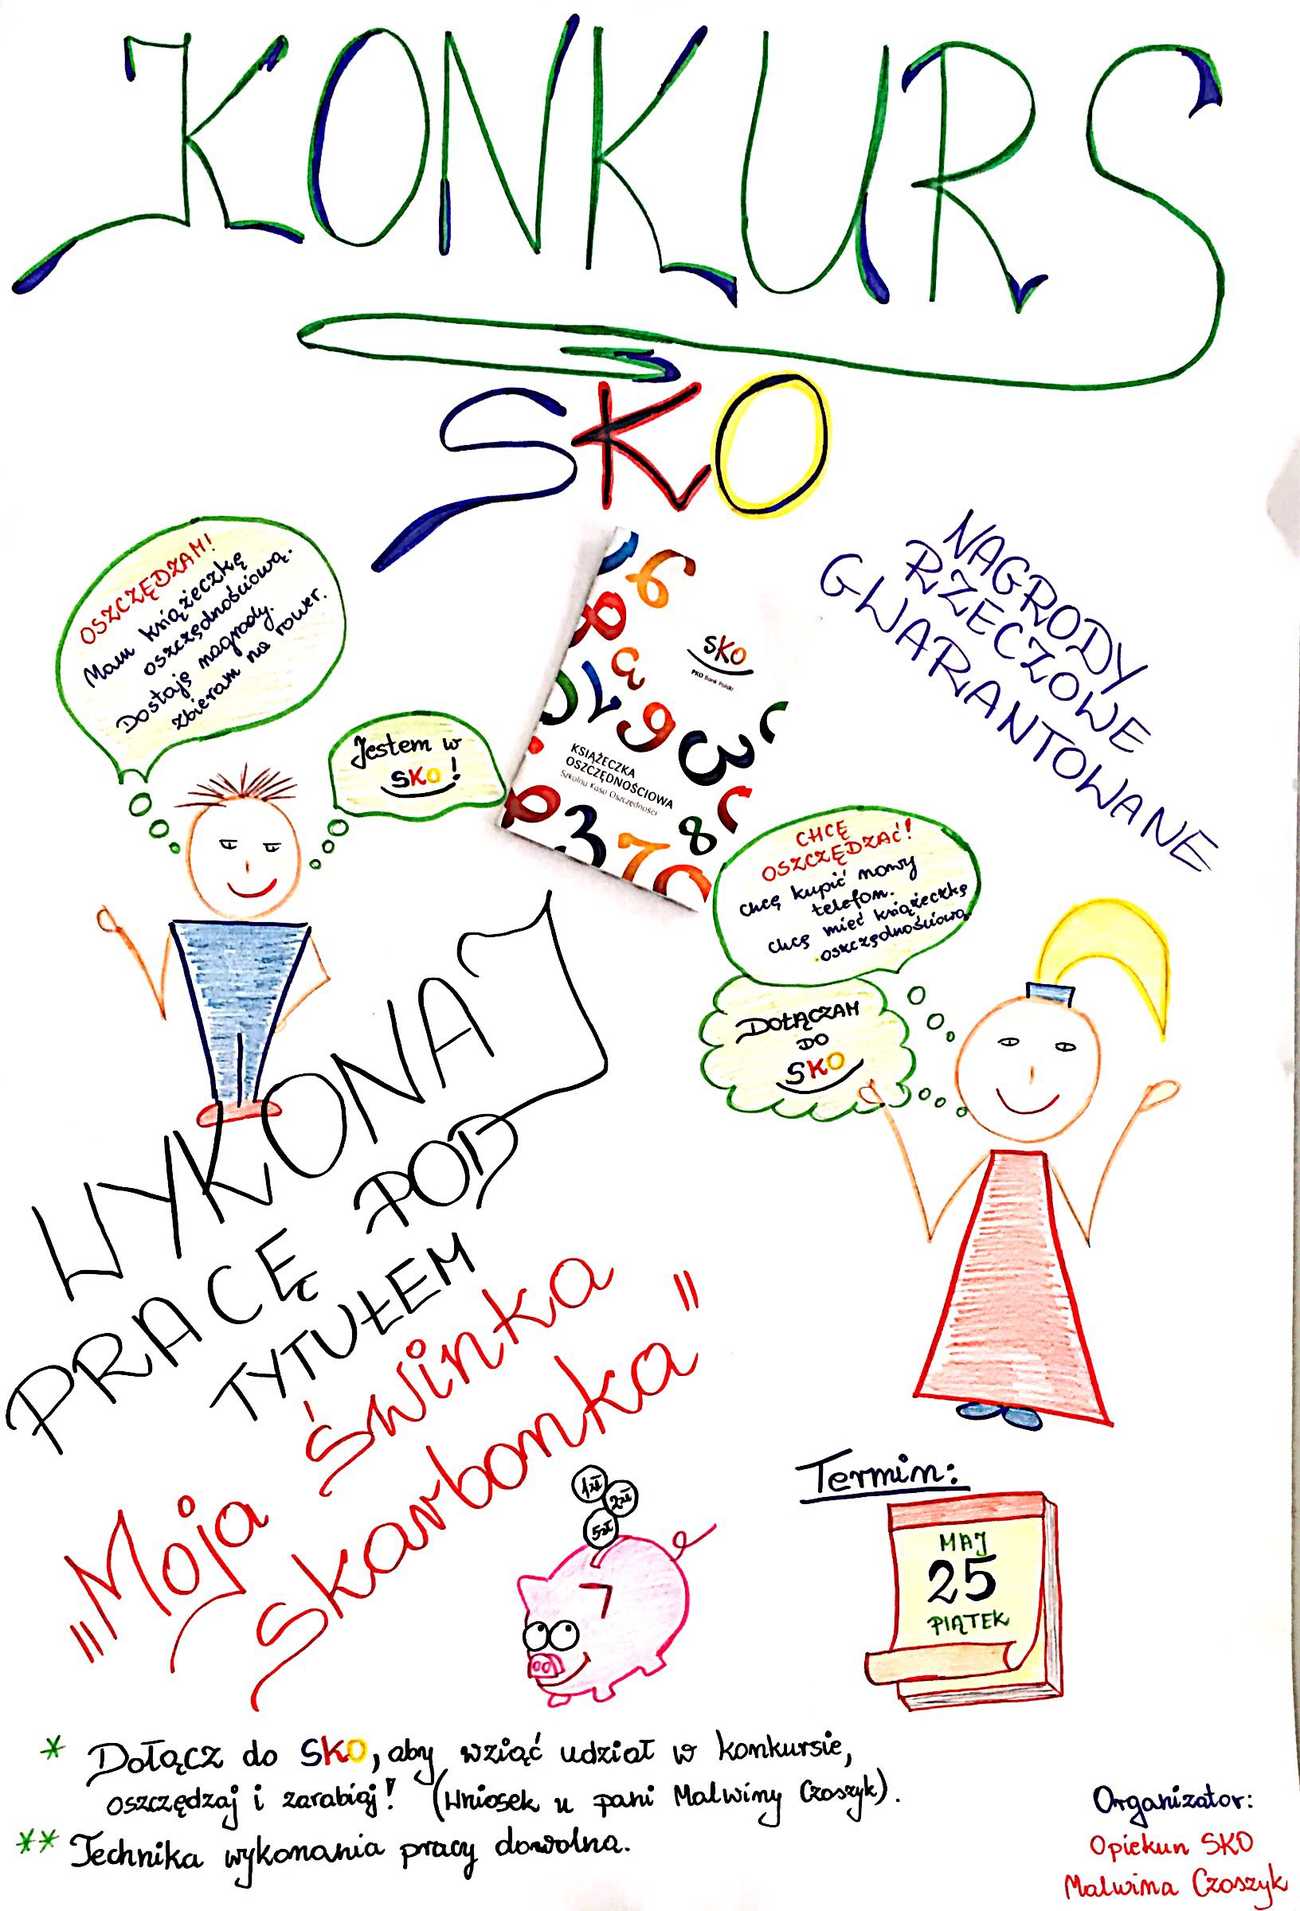 KONKURS
SKO
OSZCZĘDZAM!
Mam książeczkę
oszczędnościową.
Dostaję nagrody.
zbieram na rower.
Jestem w
SKO!
SKO
PKO Bank Polski
KSIĄŻECZKA
OSZCZĘDNOŚCIOWA
Szkolna Kasa Oszczędności
NAGRODY
RZECZOWE
GWARANTOWANE
CHCĘ
OSZCZĘDZAĆ!
chcę kupić nowy
telefon.
chcę mieć książeczkę
oszczędnościową.
DOŁĄCZAM
DO
SKO
WYKONAJ
PRACĘ POD
TYTUŁEM
„Moja świnka
skarbonka”
1zł
2zł
5zł
Termin:
MAJ
25
PIĄTEK
* Dołącz do SKO, aby wziąć udział w konkursie,
oszczędzaj i zarabiaj! (Wniosek u pani Malwiny Czaszyk).
** Technika wykonania pracy dowolna.
Organizator:
Opiekun SKO
Malwina Czaszyk